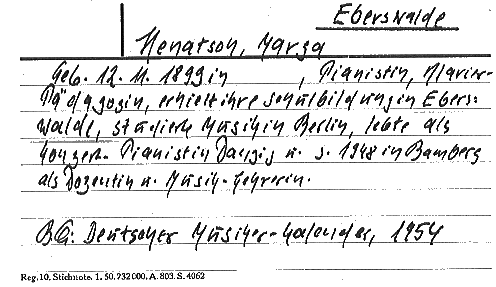 Eberswalde
Menatson, Marga
Geb. 12. 11. 1899 in , Pianistin, Klavier-
Pädagogin, erhielt ihre Schulbildung in Ebers-
walde, studierte Musik in Berlin, lebte als
Konzert-Pianistin Danzig u. s. 1948 in Bamberg
als Dozentin u. Musik-Lehrerin.
BG: Deutscher Musiker-Kalender, 1954
Reg. 10. Stichnote. 1. 50. 232000. A. 803. S. 4062